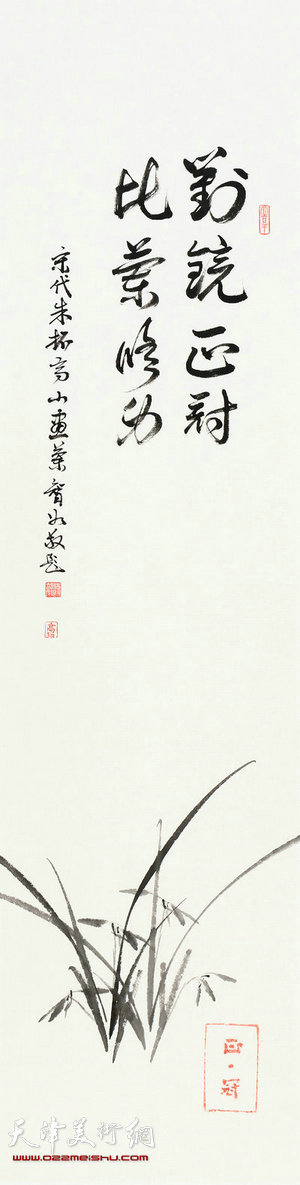 對鏡正冠
比蘭修身
宋代朱
高小畫蘭
敬題
正·冠
天津美術網
www.022meishu.com